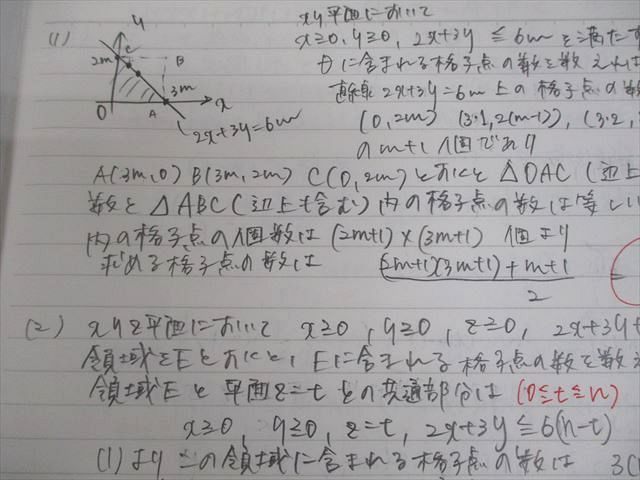 (1)
y
2m
C
B
3m
O
A
x
2x+3y=6m
xy平面において
x≧0, y≧0, 2x+3y≦6m を満たす
Dに含まれる格子点の数を数えれば
直線 2x+3y=6m 上の格子点の数
(0, 2m) (3·1, 2(m-1)), (3·2,
の m+1 個であり
A(3m, 0) B(3m, 2m) C(0, 2m) とおくと △OAC (辺上
数と △ABC (辺上も含む) 内の格子点の数は等しい
内の格子点の個数は (2m+1)×(3m+1) 個より
求める格子点の数は (2m+1)(3m+1)+m+1
2
(2) xyz平面において x≧0, y≧0, z≧0, 2x+3y+
領域をEとおくと, Eに含まれる格子点の数を数え
領域Eと平面z=tとの共通部分は (0≦t≦n)
x≧0, y≧0, z=t, 2x+3y≦6(n-t)
(1)より この領域に含まれる格子点の数は 3(